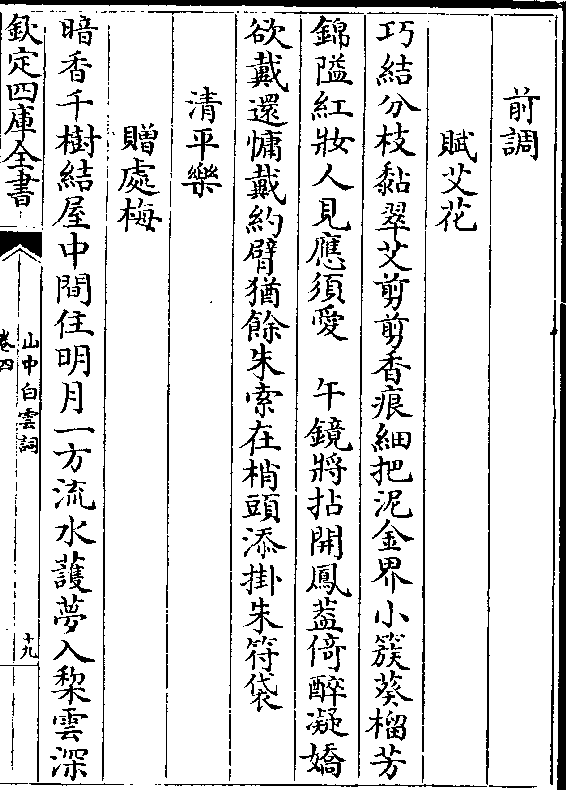 前調
賦艾花
巧結分枝黏翠艾剪剪香痕細把泥金界小簇葵榴芳
錦隘紅妝人見應須愛　午鏡將拈開鳳葢倚醉凝嬌
欲戴還慵戴約臂猶餘朱索在梢頭添掛朱符袋
清平樂
贈處梅
暗香千樹結屋中間住明月一方流水䕶夢入棃雲深
欽定四庫全書
山中白雲詞
卷四
十九